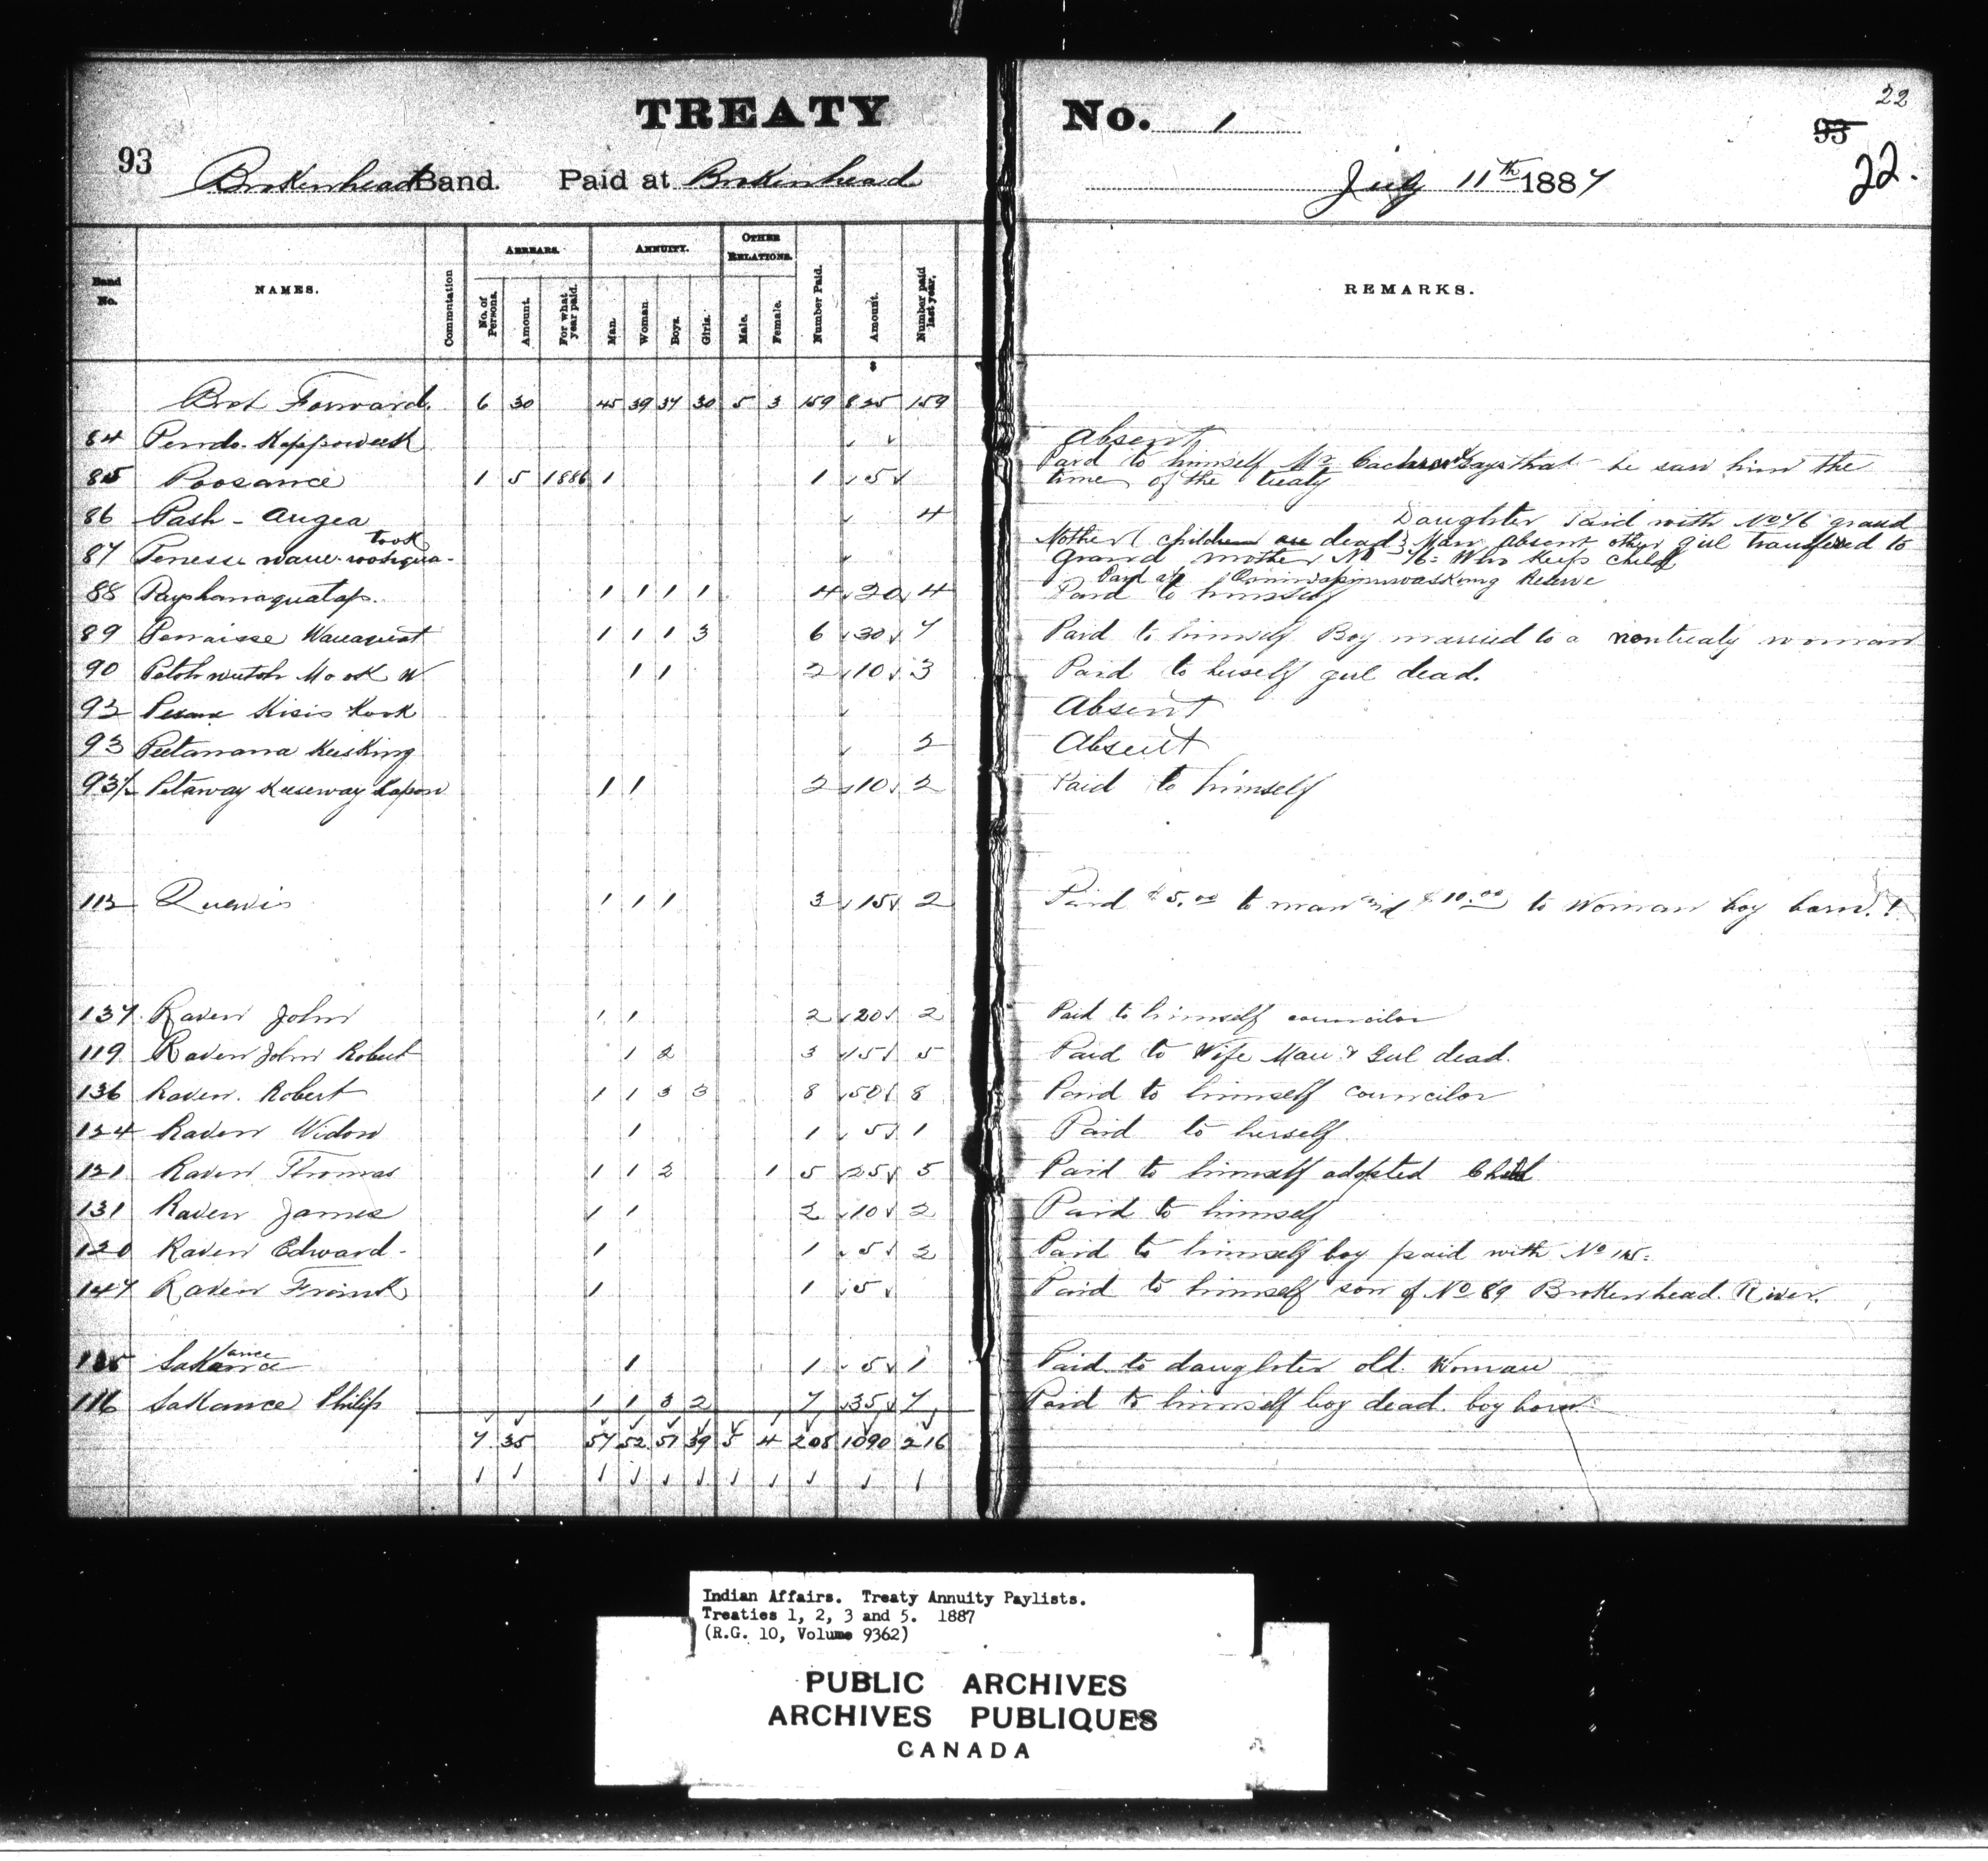 TREATY No. 1
22
93
93
22.
Brokenhead Band. Paid at Brokenhead July 11th 1887
ARREARS. ANNUITY. OTHER RELATIONS.
Band No. NAMES. Commutation No. of Persons. Amount. For what year paid. Man. Woman Boys. Girls. Male. Female. Number Paid. Amount. Number paid last year. REMARKS.
$
Brot Forward. 6 30 45 39 37 30 5 3 159 825 159
84 Absent
85 Poosance 1 5 1886 1 1 5 Paid to himself Mr says that he saw him the
time of the treaty
86 Pash - augea 4 Daughter Paid with No 46 grand
87 took Mother ( children are dead Man absent other girl transfered to
grand mother No Who keeps child
Paid at Reserve
88 Payshanaquatap. 1 1 1 1 4 20 4 Paid to himself
89 Penaisse Wauaquot 1 1 1 3 6 30 7 Paid to himself Boy married to a nontreaty woman
90 1 1 2 10 3 Paid to herself girl dead.
92 Kisis Kook Absent
93 Peetanana Keesking 2 Absent
93½ Petaway Keeseway Kapow 1 1 2 10 2 Paid to himself
112 Quewis 1 1 1 3 15 2 Paid $5.00 to man and $10.00 to Woman boy born.
137 Raven John 1 1 2 20 2 Paid to himself councilor
119 Raven John Robert 1 2 3 15 5 Paid to Wife Man & Girl dead.
136 Raven. Robert 1 1 3 3 8 50 8 Paid to himself councilor
124 Raven Widow 1 1 5 1 Paid to herself
121 Raven Thomas 1 1 2 1 5 25 5 Paid to himself adopted Child
131 Raven James 1 1 2 10 2 Paid to himself
120 Raven Edward - 1 1 5 2 Paid to himself boy paid with No 115.
147 Raven Frank 1 1 5 Paid to himself son of No 89 Brokenhead River.
115 Sakance 1 1 5 1 Paid to daughter old Woman
116 Sakance Philip 1 1 3 2 7 35 7 Paid to himself boy dead. boy born
7 35 54 52 51 39 5 4 205 1090 216
Indian Affairs. Treaty Annuity Paylists.
Treaties 1, 2, 3 and 5. 1887
(R.G. 10, Volume 9362)
PUBLIC ARCHIVES
ARCHIVES PUBLIQUES
CANADA